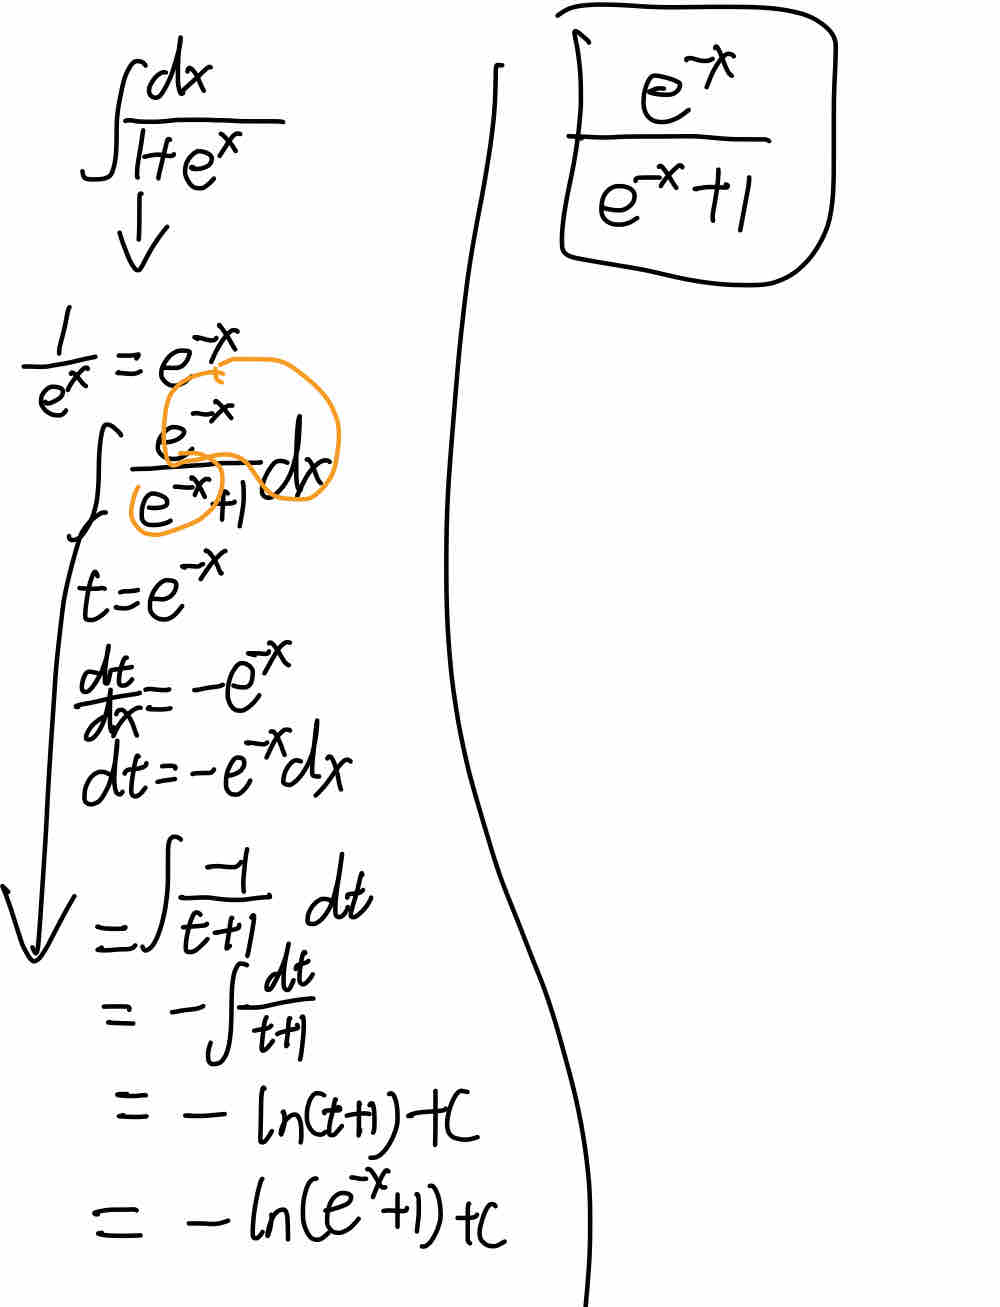 ∫ dx / (1+e^x)
↓
1/e^x = e^-x
∫ e^-x / (e^-x+1) dx
t=e^-x
dt/dx = -e^-x
dt=-e^-x dx
= ∫ -1/(t+1) dt
= -∫ dt/(t+1)
= - ln(t+1)+C
= - ln(e^-x+1)+C
e^-x / (e^-x+1)